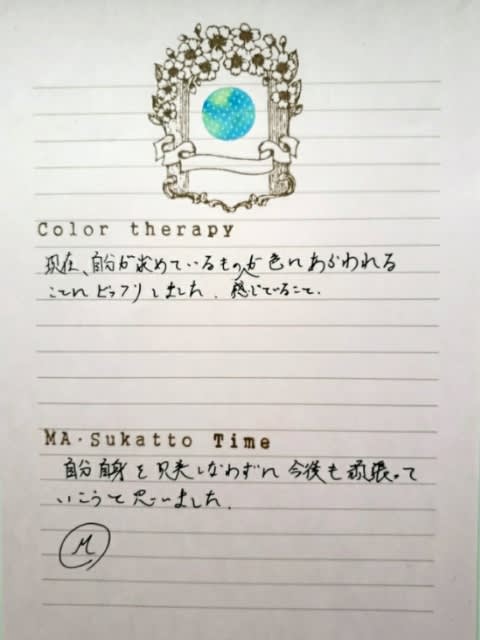 Color therapy
現在、自分が求めているものが色にあらわれる
ことにビックリしました。感じていること。
MA・Sukatto Time
自分自身を見失しなわずに今後も頑張って
いこうと思いました。
M